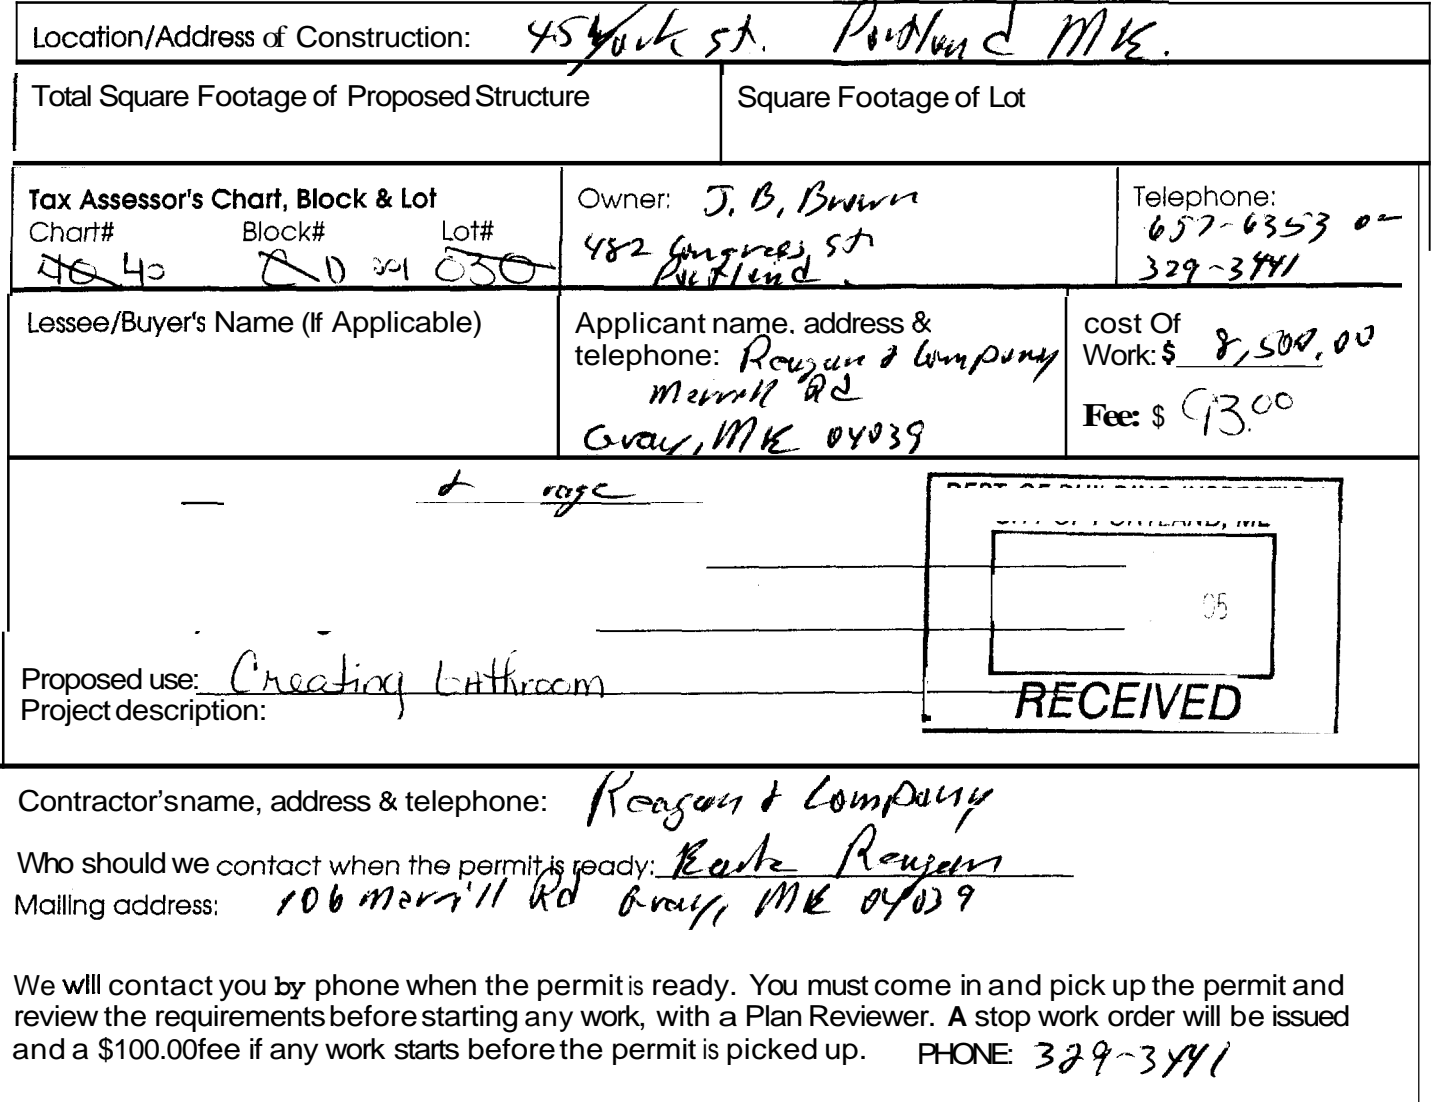 Location/Address of Construction: 45 York st. Portland ME.
Total Square Footage of Proposed Structure
Square Footage of Lot
Tax Assessor's Chart, Block & Lot
Chart# Block# Lot#
40 40 D 001 030
Owner: J. B. Brown
482 Congress st
Portland
Telephone:
657-6353 or
329-3441
Lessee/Buyer's Name (If Applicable)
Applicant name, address &
telephone: Reagan & Company
Merrill Rd
Gray, ME 04039
cost Of
Work: $ 8,500.00
Fee: $ 93.00
CITY OF PORTLAND, ME
05
RECEIVED
Proposed use: Creating bathroom
Project description:
Contractor's name, address & telephone: Reagan & Company
Who should we contact when the permit is ready: Reagan
Mailing address: 106 Merrill Rd Gray, ME 04039
We will contact you by phone when the permit is ready. You must come in and pick up the permit and
review the requirements before starting any work, with a Plan Reviewer. A stop work order will be issued
and a $100.00 fee if any work starts before the permit is picked up. PHONE: 329-3441